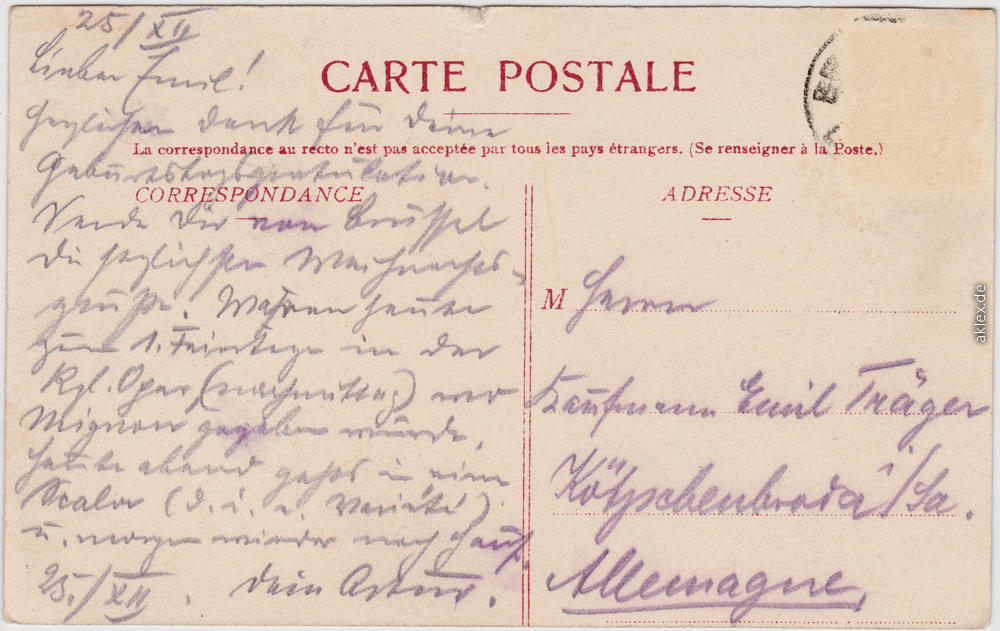 25/XII
Lieber Emil!
Herzlichen Dank für Deine
Geburtstagsgratulation.
Sende Dir von Brüssel
die herzlichsten Weihnachts-
grüße. Waren heute
zum 1. Feiertage in der
Kgl. Oper (nachmittag) wo
Mignon gegeben wurde,
heute abend gehts in eine
Scala (d. i. e. Varieté)
u. morgen wieder nach Haus.
25./XII. Dein Artur.
CARTE POSTALE
La correspondance au recto n'est pas acceptée par tous les pays étrangers. (Se renseigner à la Poste.)
CORRESPONDANCE
ADRESSE
M Herrn
Kaufmann Emil Träger
Kötzschenbroda i/Sa.
Allemagne.
aklex.de